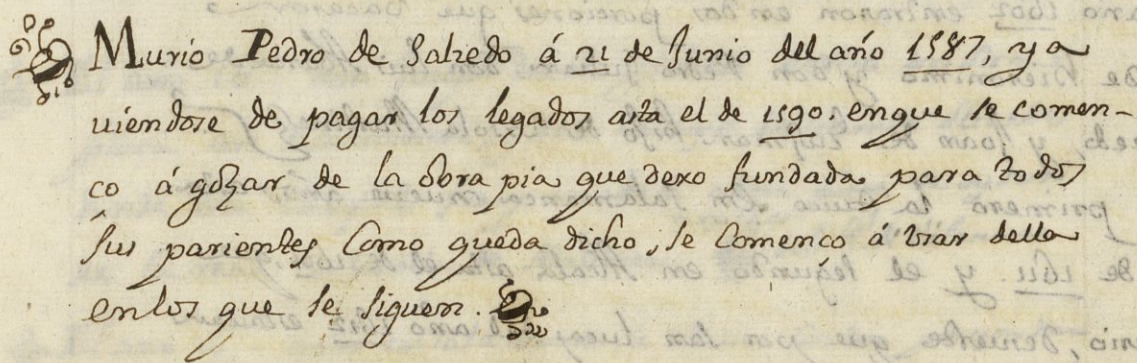 Murio Pedro de Salzedo á 21 de Junio del año 1587, y a
uiendose de pagar los legados asta el de 1590. en que se comen-
co á gozar de la obra pia que dexo fundada para todos
sus parientes Como queda dicho, se Comenco á vsar della
en los que se siguen.